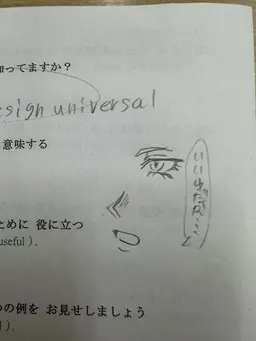 知ってますか？
esign universal
意味する
いい女だな…
ために 役に立つ
useful ).
つの例を お見せしましょう